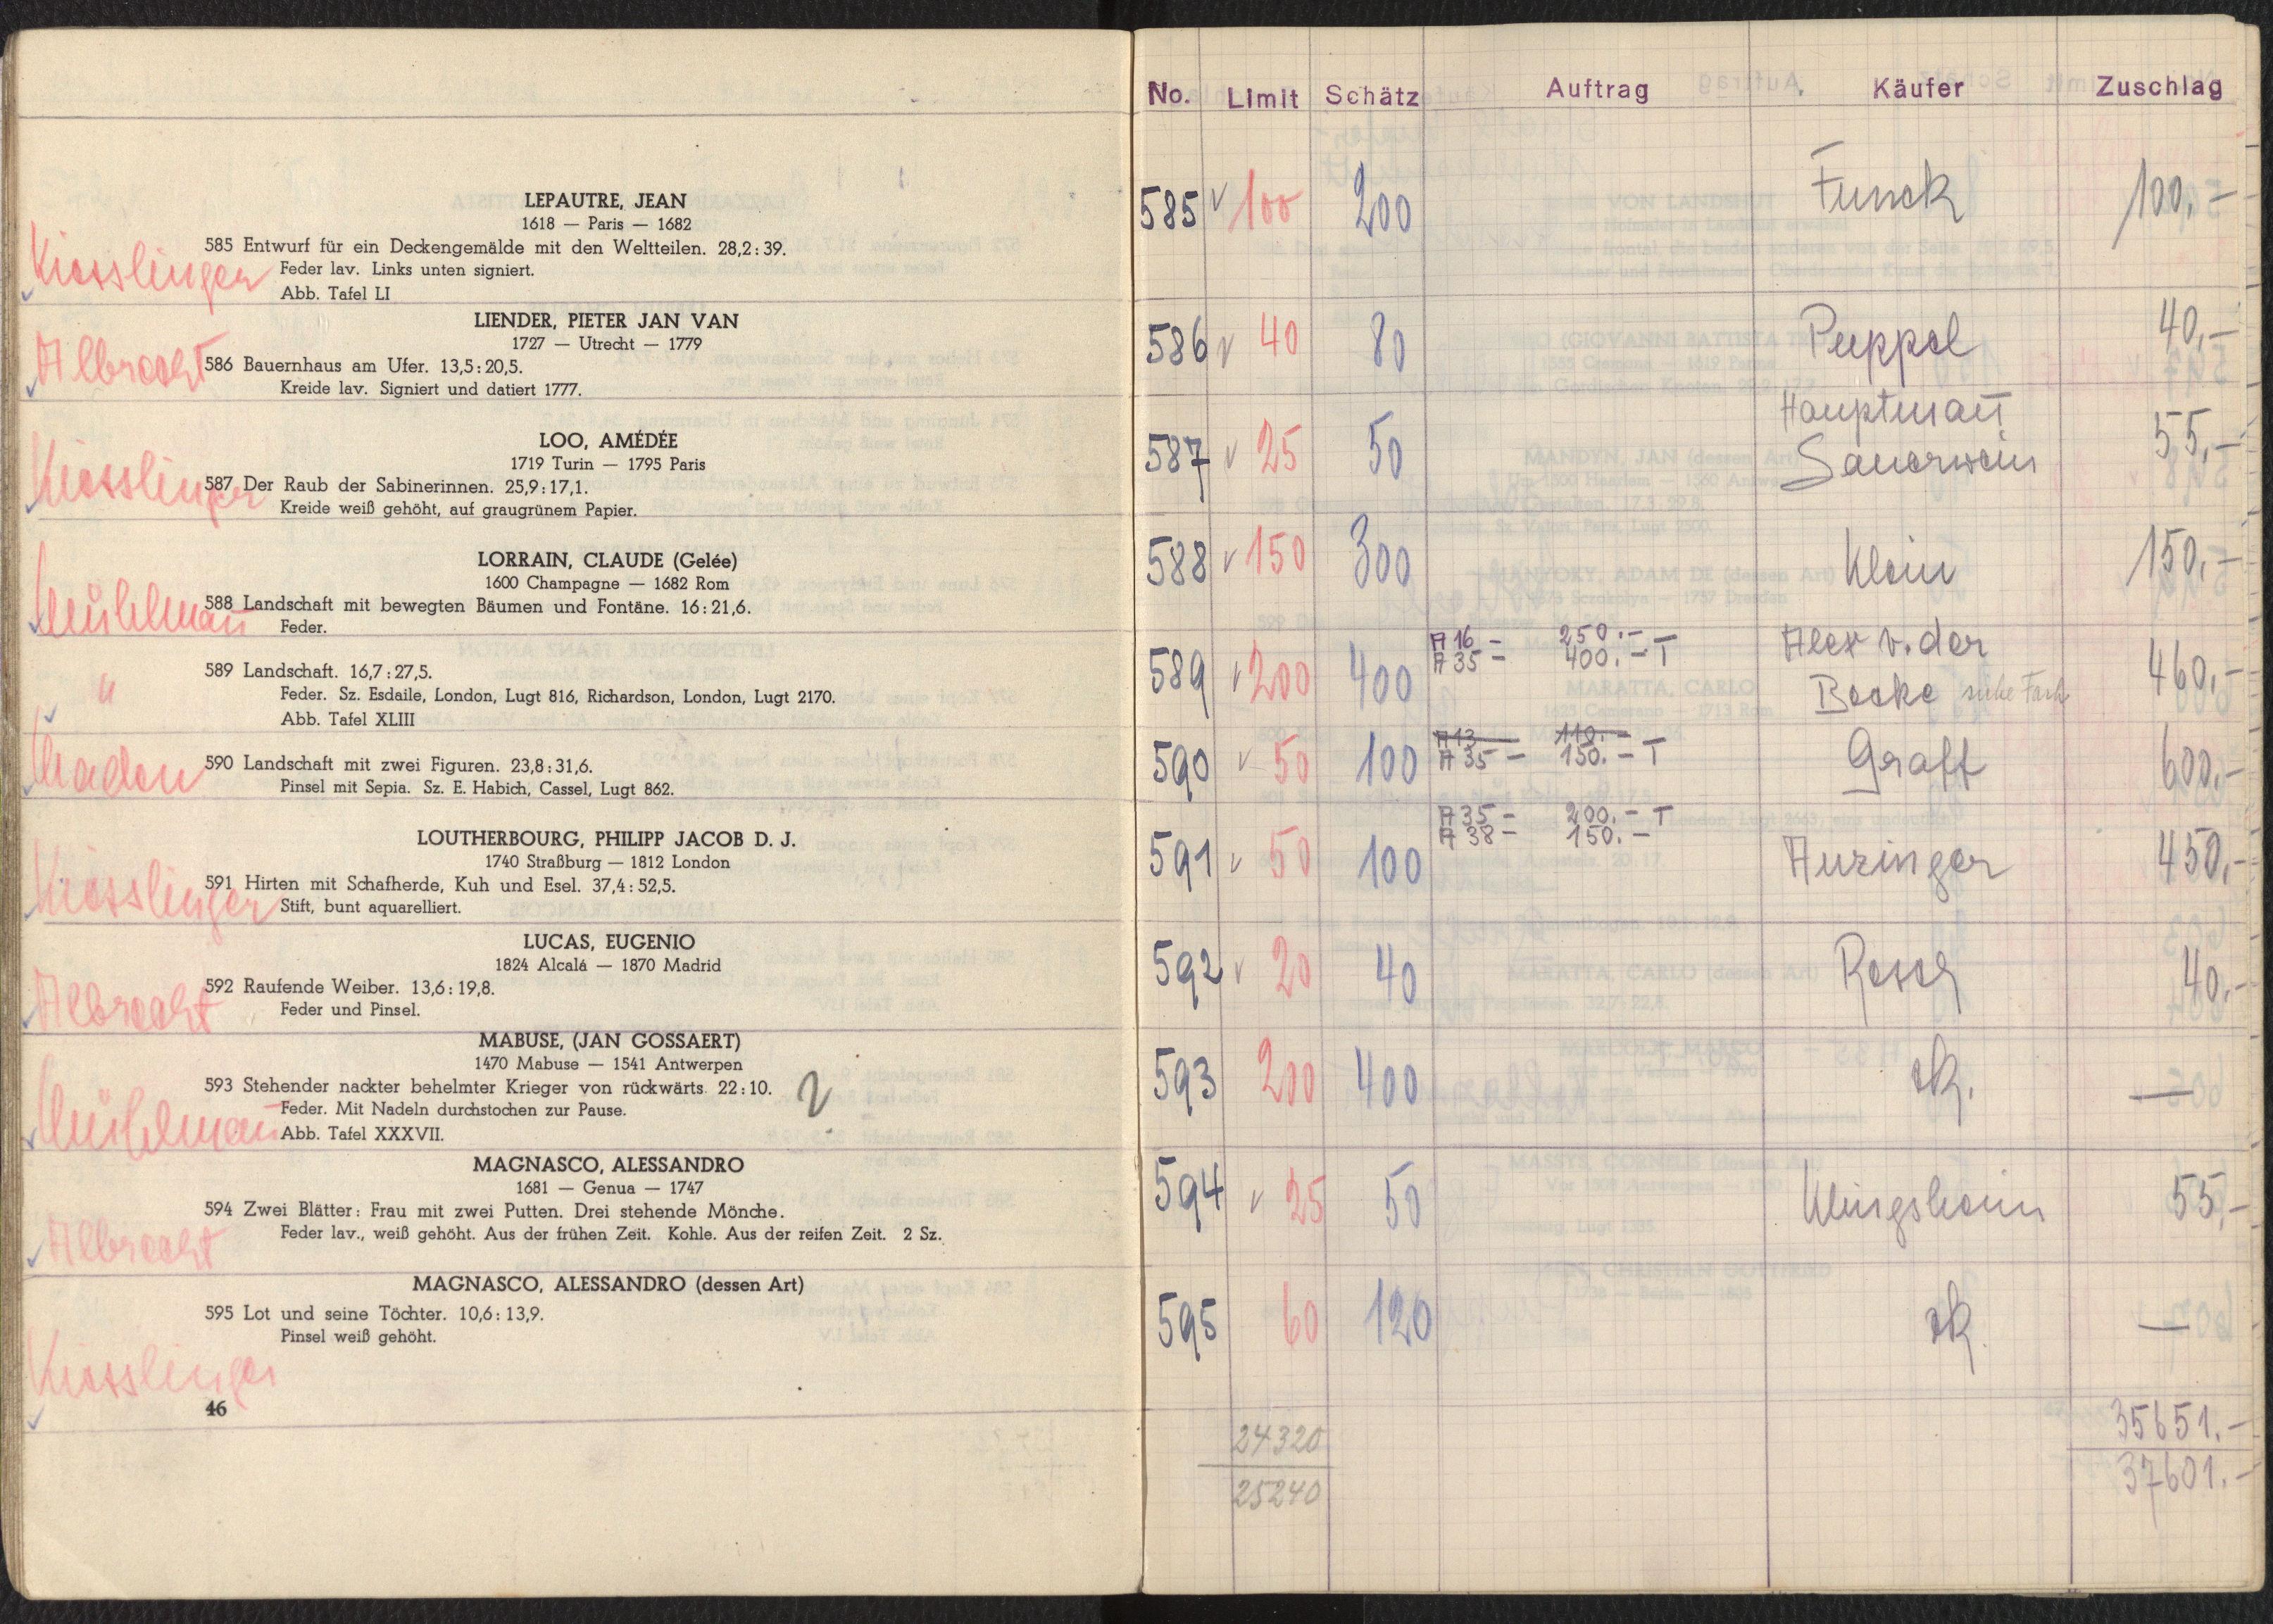 LEPAUTRE, JEAN
1618 — Paris — 1682
585 Entwurf für ein Deckengemälde mit den Weltteilen. 28,2 : 39.
Feder lav. Links unten signiert.
Abb. Tafel LI
Kiesslinger
LIENDER, PIETER JAN VAN
1727 — Utrecht — 1779
586 Bauernhaus am Ufer. 13,5 : 20,5.
Kreide lav. Signiert und datiert 1777.
Albrecht
LOO, AMÉDÉE
1719 Turin — 1795 Paris
587 Der Raub der Sabinerinnen. 25,9 : 17,1.
Kreide weiß gehöht, auf graugrünem Papier.
Kiesslinger
LORRAIN, CLAUDE (Gelée)
1600 Champagne — 1682 Rom
588 Landschaft mit bewegten Bäumen und Fontäne. 16 : 21,6.
Feder.
Mühlmañ
589 Landschaft. 16,7 : 27,5.
Feder. Sz. Esdaile, London, Lugt 816, Richardson, London, Lugt 2170.
Abb. Tafel XLIII
"
590 Landschaft mit zwei Figuren. 23,8 : 31,6.
Pinsel mit Sepia. Sz. E. Habich, Cassel, Lugt 862.
LOUTHERBOURG, PHILIPP JACOB D. J.
1740 Straßburg — 1812 London
591 Hirten mit Schafherde, Kuh und Esel. 37,4 : 52,5.
Stift, bunt aquarelliert.
Kiesslinger
LUCAS, EUGENIO
1824 Alcalá — 1870 Madrid
592 Raufende Weiber. 13,6 : 19,8.
Feder und Pinsel.
Albrecht
MABUSE, (JAN GOSSAERT)
1470 Mabuse — 1541 Antwerpen
593 Stehender nackter behelmter Krieger von rückwärts. 22 : 10.
Feder. Mit Nadeln durchstochen zur Pause.
Abb. Tafel XXXVII.
Mühlmañ
MAGNASCO, ALESSANDRO
1681 — Genua — 1747
594 Zwei Blätter: Frau mit zwei Putten. Drei stehende Mönche.
Feder lav., weiß gehöht. Aus der frühen Zeit. Kohle. Aus der reifen Zeit. 2 Sz.
Albrecht
MAGNASCO, ALESSANDRO (dessen Art)
595 Lot und seine Töchter. 10,6 : 13,9.
Pinsel weiß gehöht.
Kiesslinger
46
No. Limit Schätz Auftrag Käufer Zuschlag
585 100 200 Funck 100,-
586 40 80 Puppel 40,-
587 25 50 Hauptmañ 55,-
Sauerwein
588 150 300 Klein 150,-
589 200 400 A 16 – 250.– Alex v. der 460,-
A 35 – 400.– T Becke siehe
590 50 100 A 13 110.– Graff 600,-
A 35 – 150.– T
591 50 100 A 35 – 200.– T Auzinger 450,-
A 38 – 150.–
592 20 40 Resch 40,-
593 200 400 zk. —
594 25 50 Klingsheim 55,-
595 60 120 zk. —
24320 35651.-
25240 37601.-